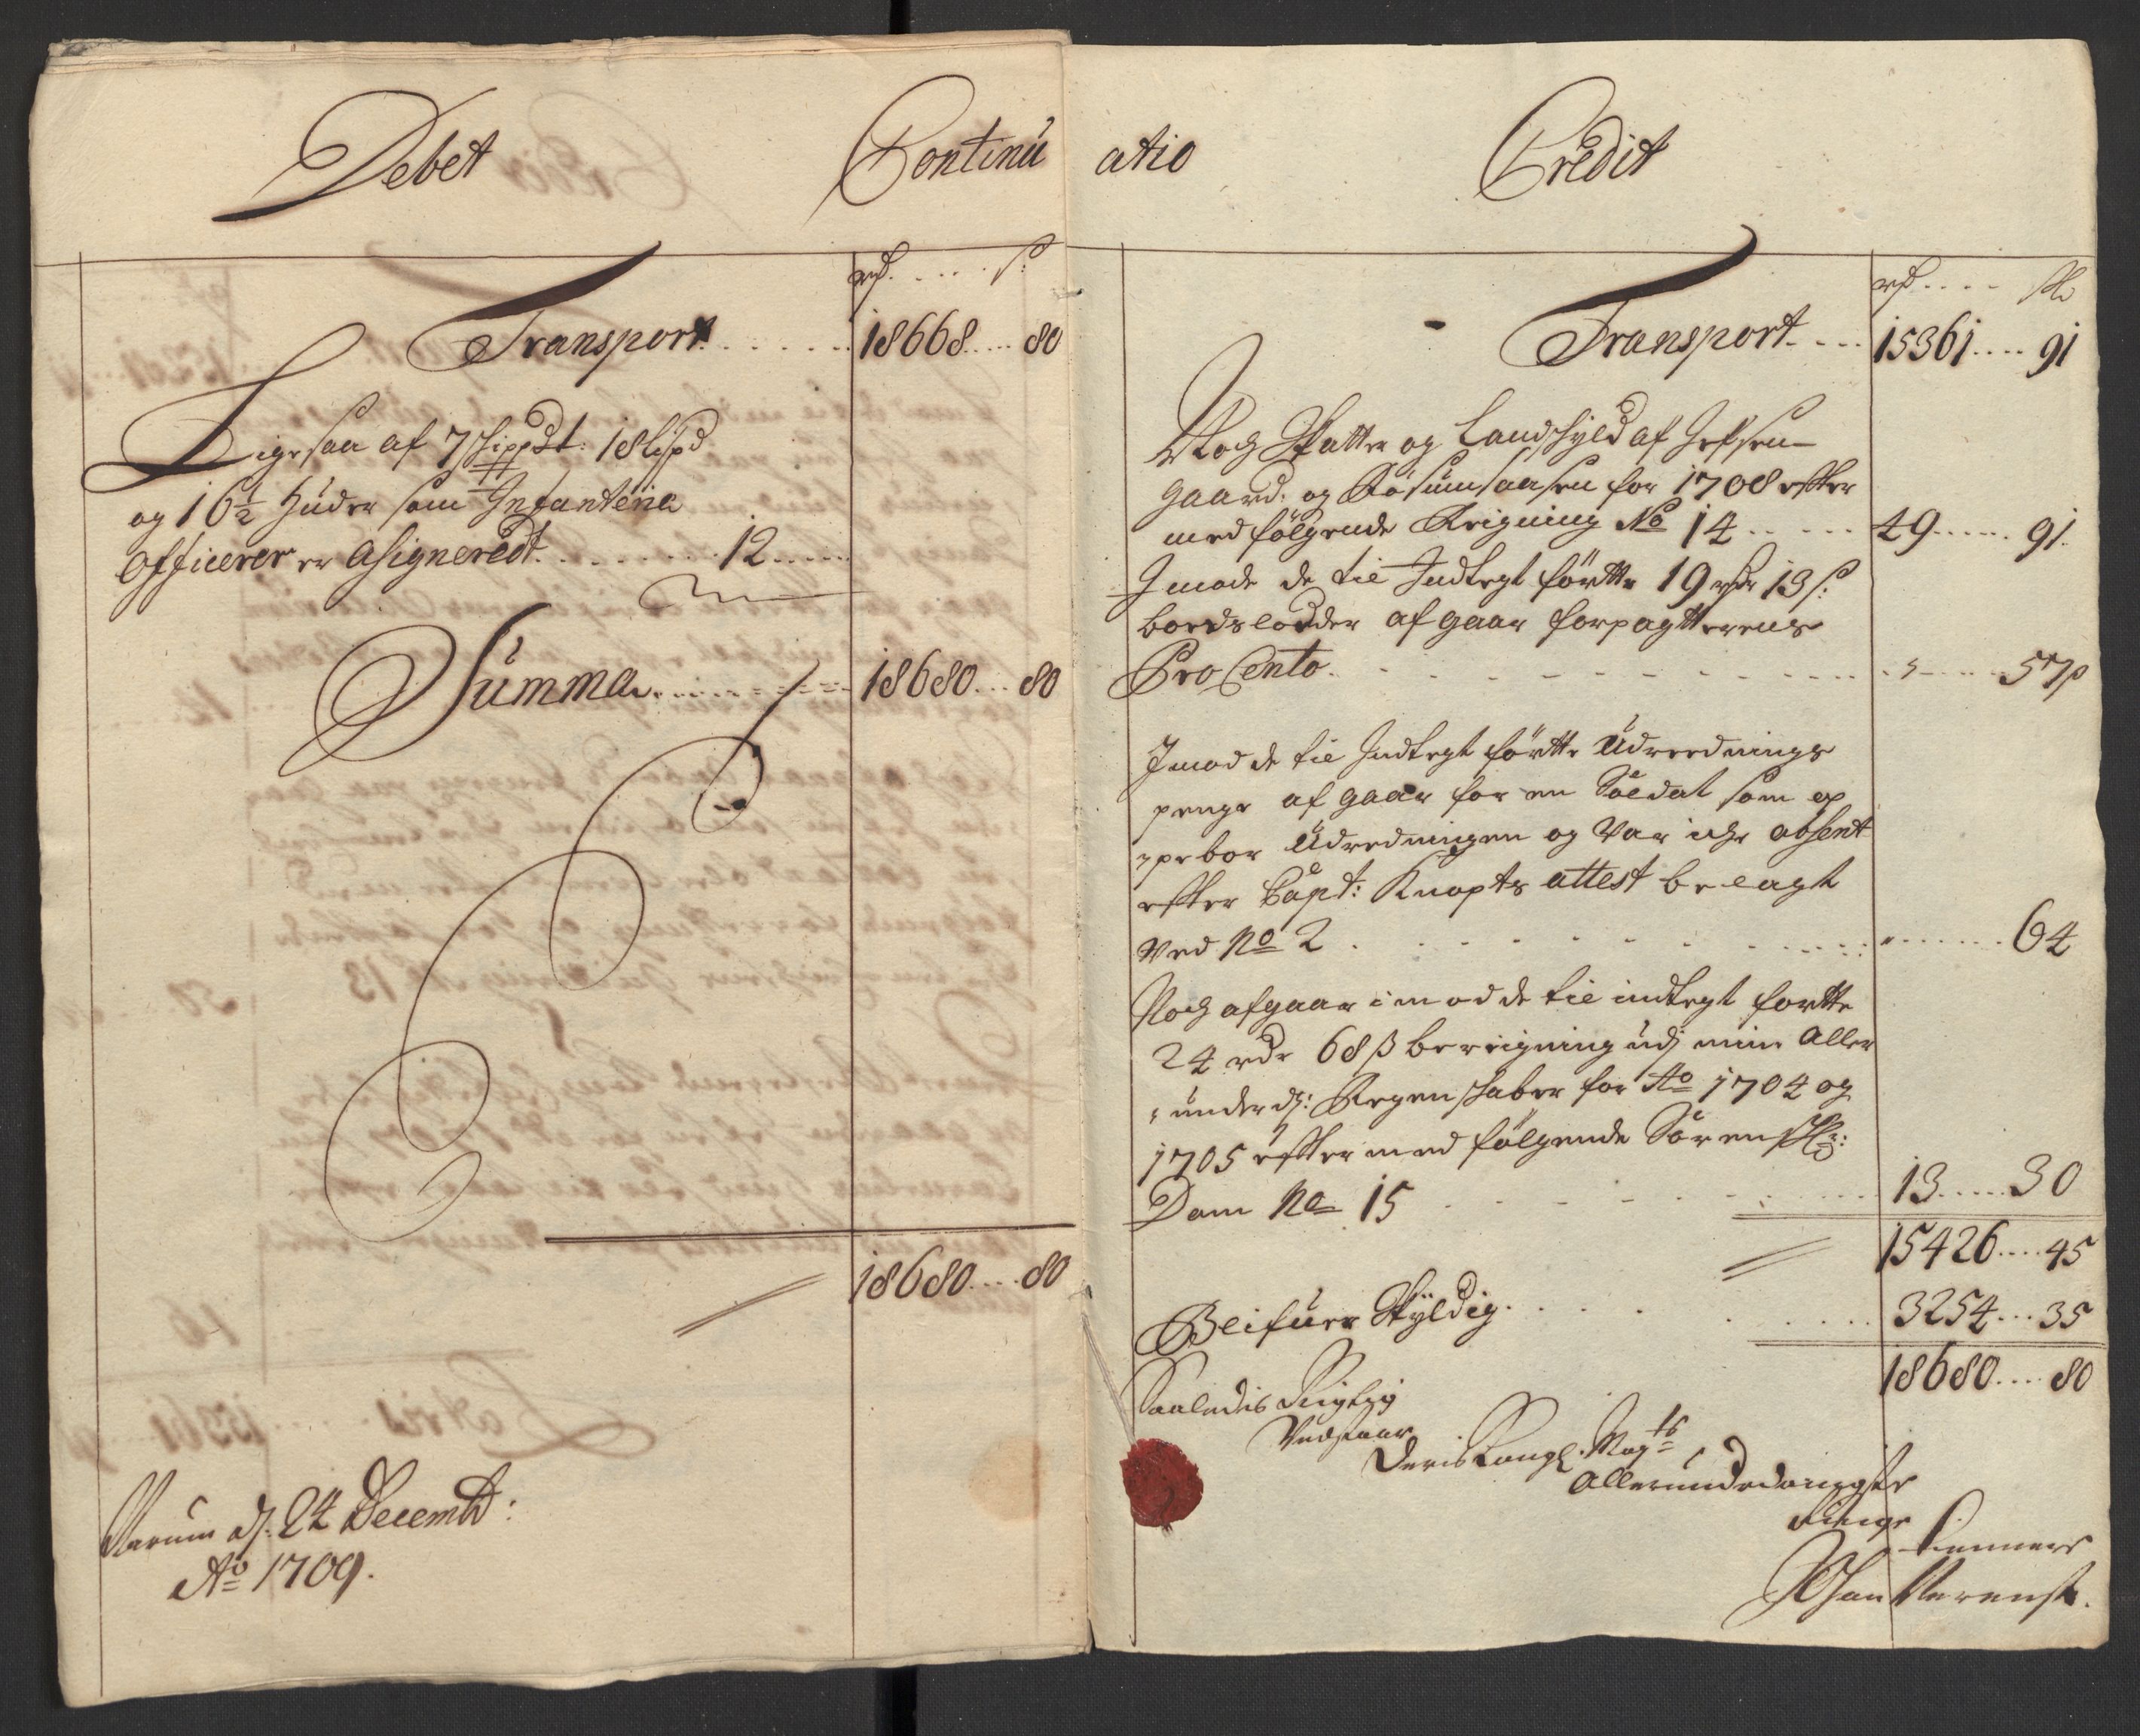 Debet Continu
rd. . . . . ß:
Transport . . . . . . 18668 . . . . 80
Ligesaa af 7 Schippdt: 18 lispd
og 16½ huder som Infanterie
Officerer er Asigneredt . . . . . . . 12 . . . . .
Summa . . . . . . . . . . . 18680 . . . 80
18680 . . . . 80
Narum dj. 24 Decembr:
Ao 1709.
atio Credit
rd . . . . ß
Transport . . . . 15361 . . . . 91
Noch Skatter og Landschyld af
gaard: og for 1708 efter
medfølgende Reigning No 14 . . . . . 49 . . . . . . 91.
Imode de til Indtegt førtte 19 rdr 13 ß:
bordslodder afgaar forpagtterens
Pro Cento . . . . . . . . . . . . . . . 57
Imod de til Indtegt førtte Udreednings
penge afgaar for en Soldat som op
pebor Udredningen og Var iche absent
efter Capt: Knopts attest belagt
Ved No 2 . . . . . . . . . . . . . . . . . . . 64
Noch afgaar imod de til indtegt førtte
24 rdr 68 ß bereigning udj mine Aller
underdj: Regenskaber for Ao 1704 og
1705 efter medfølgende Sorenskr:
Dom No 15 . . . . . . . . . . . 13 . . . . . 30
15426 . . . . 45
Blifuer Skyldig . . . . . . . . . . 3254 . . . 35
18680 . . . . 80
Saaledis Rigtig
Vedstaar
Deris Kongl. Mayts
Allerunderdanigste
Tienere